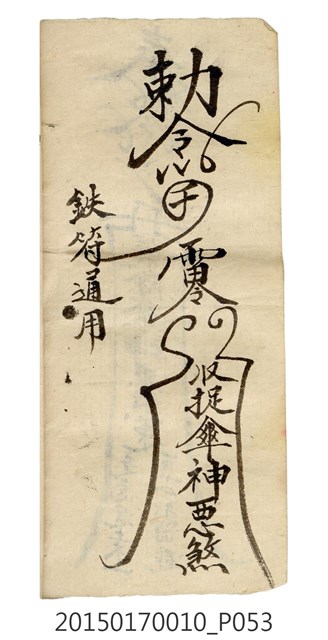 勅令
雷令
收捉傘神惡煞
鉄符通用
20150170010_P053